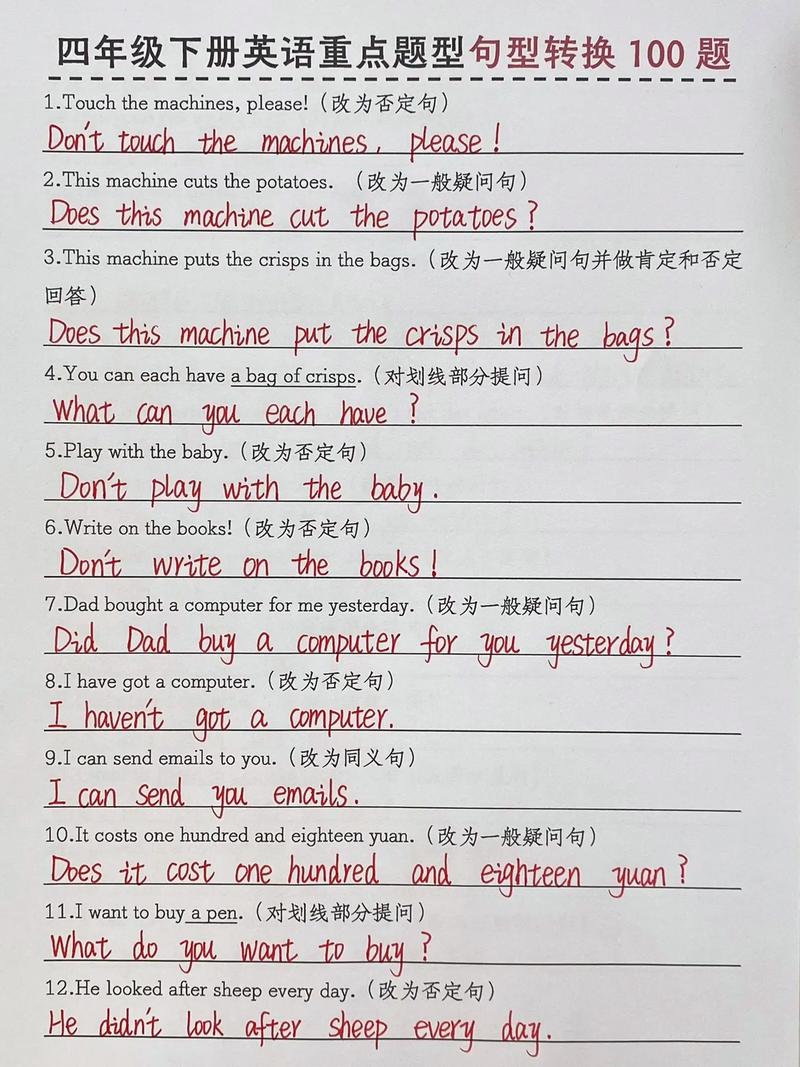 四年级下册英语重点题型句型转换 100 题
1.Touch the machines, please!（改为否定句）
Don't touch the machines, please!
2.This machine cuts the potatoes. （改为一般疑问句）
Does this machine cut the potatoes?
3.This machine puts the crisps in the bags.（改为一般疑问句并做肯定和否定
回答）
Does this machine put the crisps in the bags?
4.You can each have a bag of crisps.（对划线部分提问）
What can you each have?
5.Play with the baby.（改为否定句）
Don't play with the baby.
6.Write on the books!（改为否定句）
Don't write on the books!
7.Dad bought a computer for me yesterday.（改为一般疑问句）
Did Dad buy a computer for you yesterday?
8.I have got a computer.（改为否定句）
I haven't got a computer.
9.I can send emails to you.（改为同义句）
I can send you emails.
10.It costs one hundred and eighteen yuan.（改为一般疑问句）
Does it cost one hundred and eighteen yuan?
11.I want to buy a pen.（对划线部分提问）
What do you want to buy?
12.He looked after sheep every day.（改为否定句）
He didn't look after sheep every day.